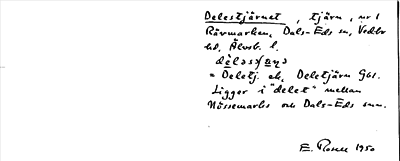 Delestjärnet, tjärn, nr 1
Rävmarken, Dals-Eds sn, Vedbo
hd, Älvsb. l.
= Deletj. ek, Deletjärn Gbs.
Ligger i "delet" mellan
Nössemarks och Dals-Eds snr.
E. Rosell 1950